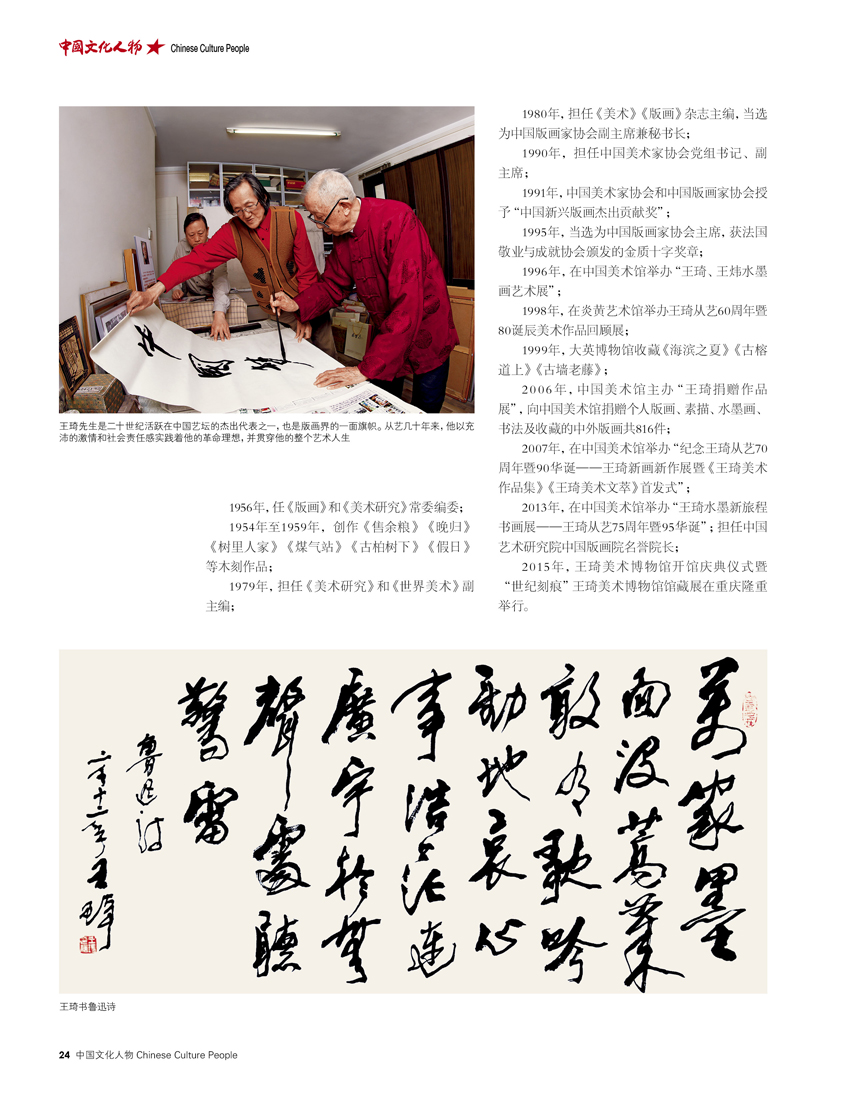 中國文化人物 Chinese Culture People
王琦先生是二十世纪活跃在中国艺坛的杰出代表之一，也是版画界的一面旗帜。从艺几十年来，他以充
沛的激情和社会责任感实践着他的革命理想，并贯穿他的整个艺术人生
1956年，任《版画》和《美术研究》常委编委；
1954年至1959年，创作《售余粮》《晚归》
《树里人家》《煤气站》《古柏树下》《假日》
等木刻作品；
1979年，担任《美术研究》和《世界美术》副
主编；
1980年，担任《美术》《版画》杂志主编，当选
为中国版画家协会副主席兼秘书长；
1990年，担任中国美术家协会党组书记、副
主席；
1991年，中国美术家协会和中国版画家协会授
予“中国新兴版画杰出贡献奖”；
1995年，当选为中国版画家协会主席，获法国
敬业与成就协会颁发的金质十字奖章；
1996年，在中国美术馆举办“王琦、王炜水墨
画艺术展”；
1998年，在炎黄艺术馆举办王琦从艺60周年暨
80诞辰美术作品回顾展；
1999年，大英博物馆收藏《海滨之夏》《古榕
道上》《古墙老藤》；
2006年，中国美术馆主办“王琦捐赠作品
展”，向中国美术馆捐赠个人版画、素描、水墨画、
书法及收藏的中外版画共816件；
2007年，在中国美术馆举办“纪念王琦从艺70
周年暨90华诞——王琦新画新作展暨《王琦美术
作品集》《王琦美术文萃》首发式”；
2013年，在中国美术馆举办“王琦水墨新旅程
书画展——王琦从艺75周年暨95华诞”；担任中国
艺术研究院中国版画院名誉院长；
2015年，王琦美术博物馆开馆庆典仪式暨
“世纪刻痕”王琦美术博物馆馆藏展在重庆隆重
举行。
萬家墨
面没蒿萊
敢有歌吟
動地哀心
事浩茫連
廣宇於無
聲處聽
驚雷
魯迅詩
王琦
王琦书鲁迅诗
24 中国文化人物 Chinese Culture People